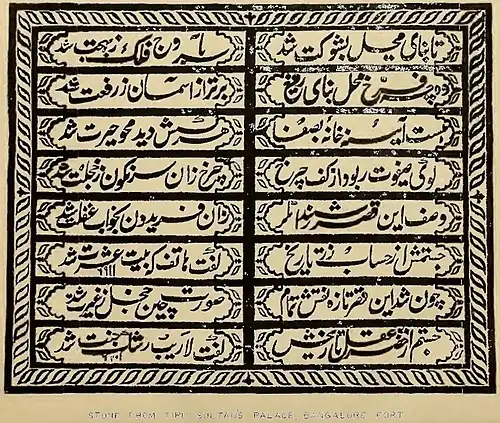 تا بنای محل بشوکت شد سر بگردون فلک ز بهجت شد
وه چه فرخ محل بنای برتر از آسمان ز رفعت شد
هست آئینه خانهٔ بصفا هر کسش دید محو حیرت شد
گوی صفوت ربود از کف چرخ چرخ زان سرنگون ز خجلت شد
وصف این قصر زان فریدون بخواب غفلت شد
جستمش از حساب زر تاریخ گفت هاتف که بیت عشرت شد
چون شد این قصر تازه نقش تمام صورت چین خجل ز غیرت شد
جستم از خضر عقل تاریخش گفت لاریب رشک جنت شد
STONE FROM TIPU SULTANS PALACE, BANGALORE FORT